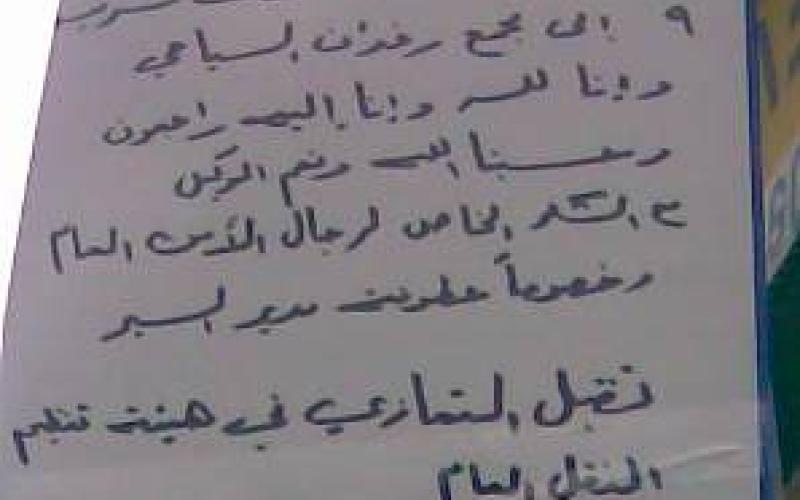 ٩ إلى مجمع رغدان السياحي
وإنا لله وإنا إليه راجعون
وحسبنا الله ونعم الوكيل
مع الشكر الخاص لرجال الأمن العام
وخصوصاً عطوفت مدير السير
نتقبل التعازي في هيئة تنظيم
النقل العام